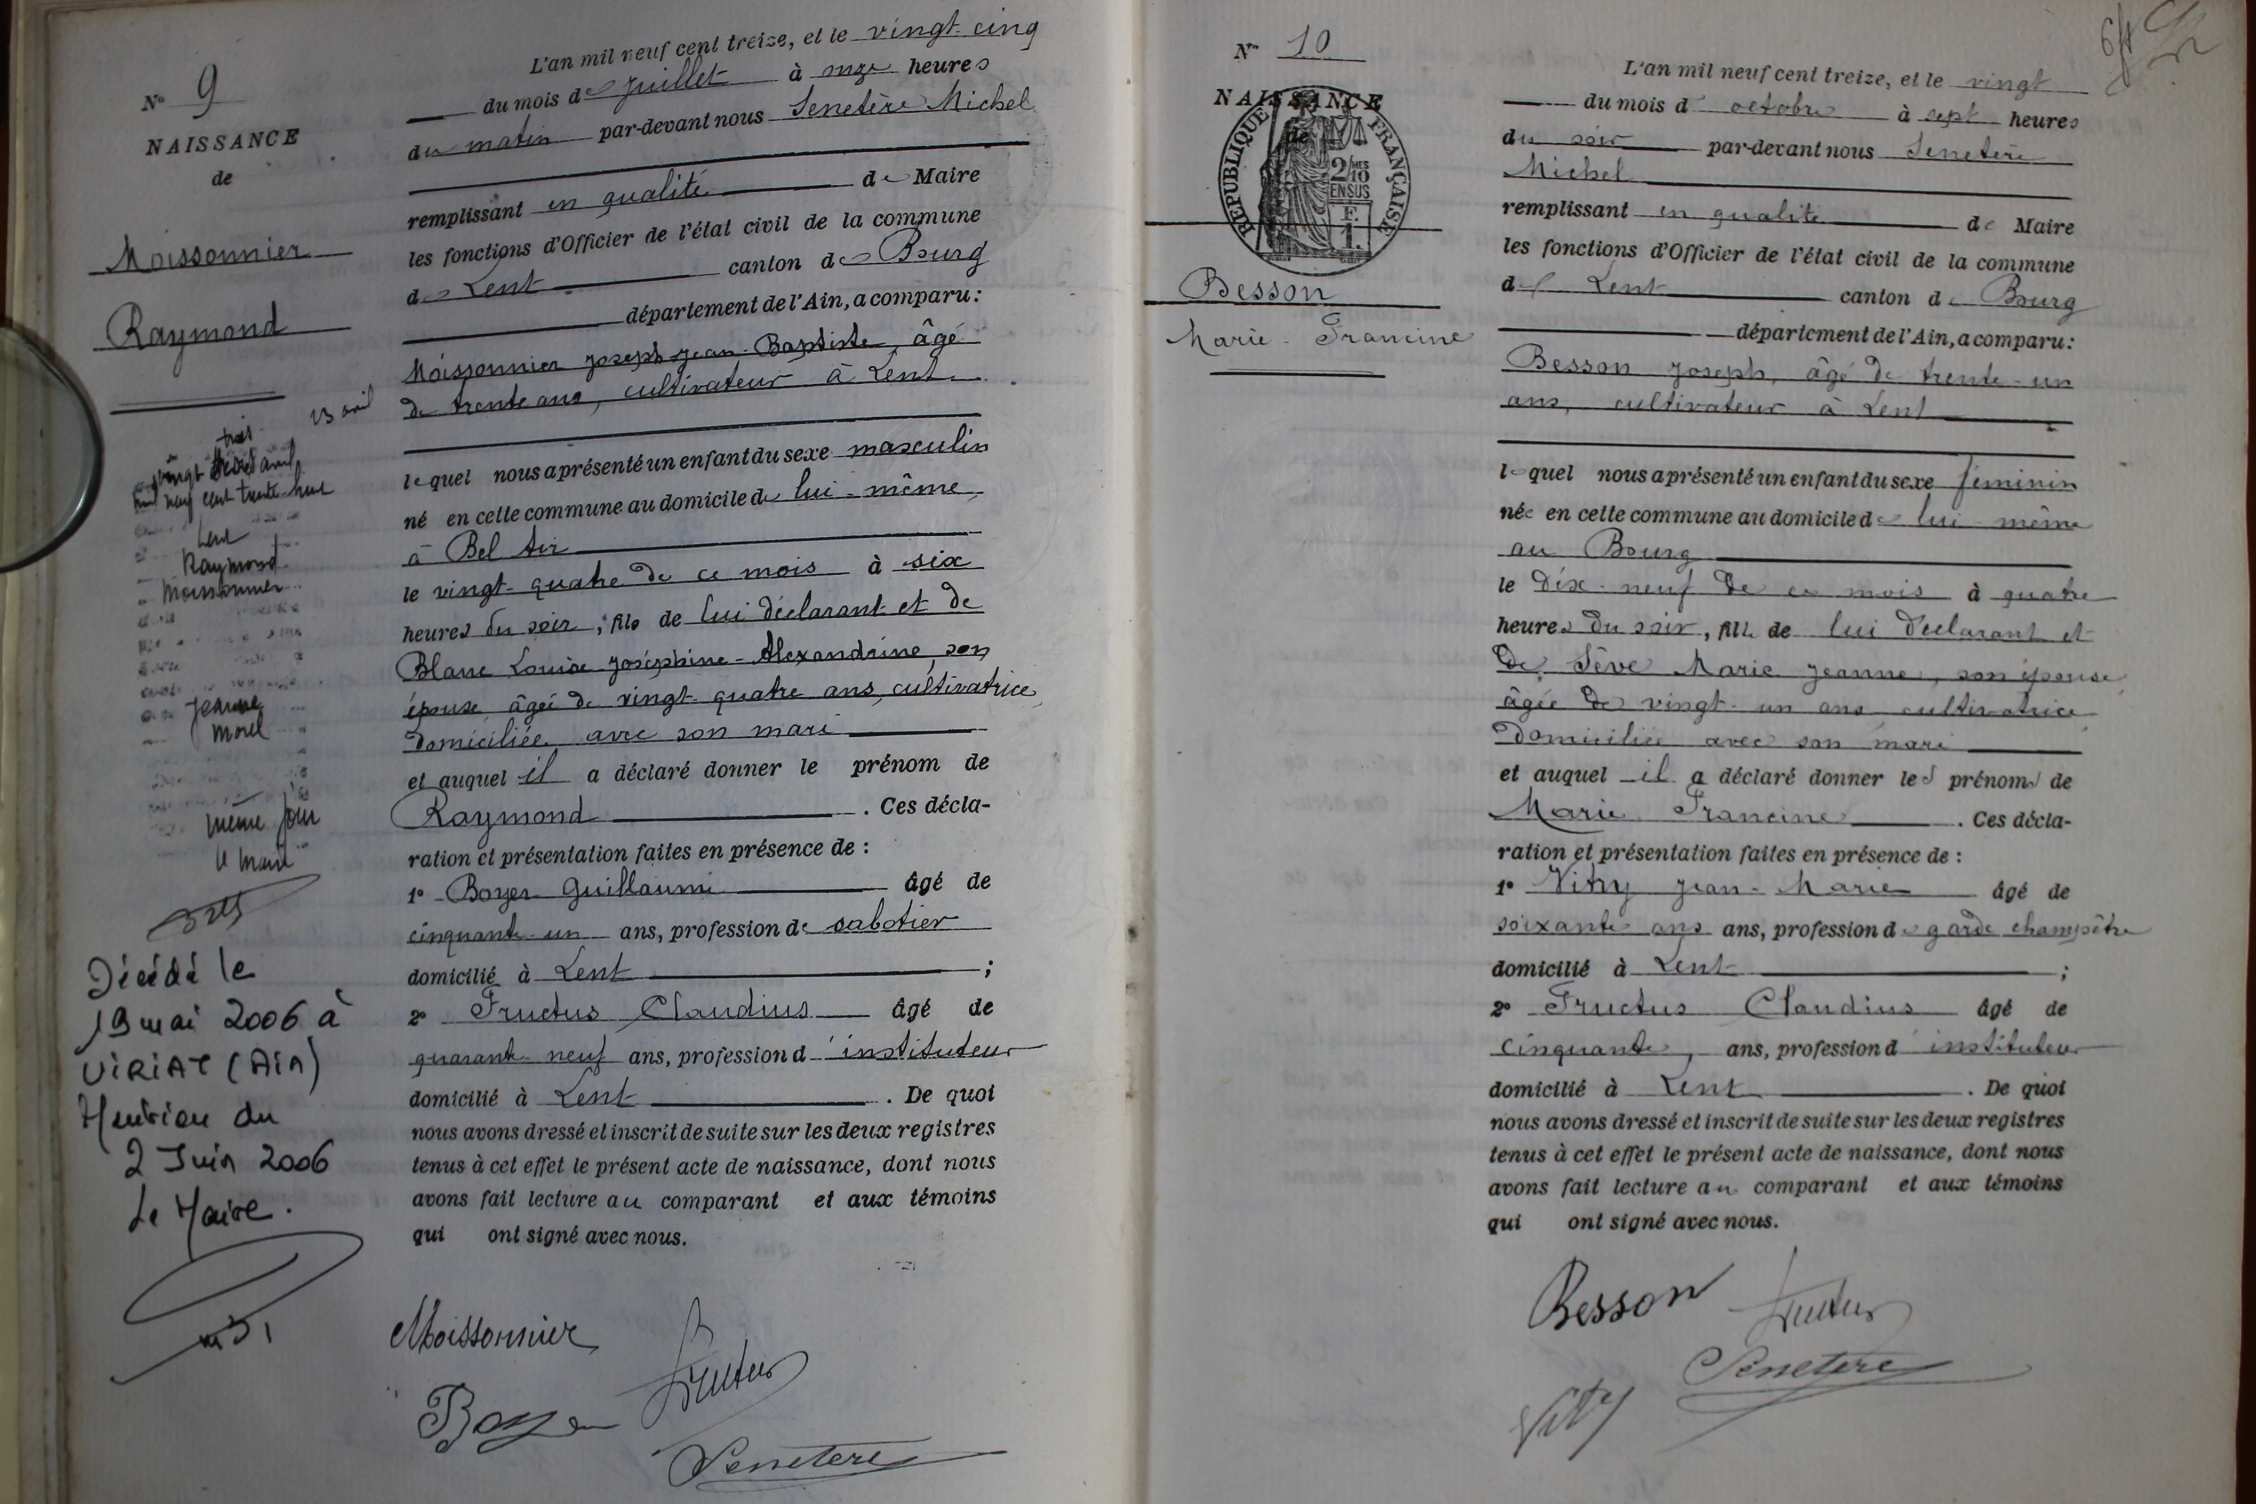 N° 9
NAISSANCE
de
Moissonnier
Raymond
23 avril
trois
vingt avril
mil neuf cent trente huit
Lent
Raymond
Moissonnier
Jeanne
Morel
même jour
le maire
Décédé le
19 mai 2006 à
VIRIAT (AIN)
Mention du
2 Juin 2006
Le Maire.
L'an mil neuf cent treize, et le vingt-cinq
du mois de Juillet à onze heures
du matin par-devant nous Senetère Michel
remplissant en qualité de Maire
les fonctions d'Officier de l'état civil de la commune
de Lent canton de Bourg
département de l'Ain, a comparu :
Moissonnier Joseph Jean-Baptiste, âgé
de trente ans, cultivateur à Lent.
lequel nous a présenté un enfant du sexe masculin
né en cette commune au domicile de lui-même,
à Bel Air
le vingt-quatre de ce mois à six
heures du soir, fils de lui déclarant et de
Blanc Louise Joséphine-Alexandrine, son
épouse, âgée de vingt-quatre ans, cultivatrice,
domiciliée avec son mari
et auquel il a déclaré donner le prénom de
Raymond . Ces décla-
ration et présentation faites en présence de :
1° Boyer Guillaume âgé de
cinquante-un ans, profession de sabotier
domicilié à Lent ;
2° Fructus Claudius âgé de
quarante-neuf ans, profession d'instituteur
domicilié à Lent . De quoi
nous avons dressé et inscrit de suite sur les deux registres
tenus à cet effet le présent acte de naissance, dont nous
avons fait lecture au comparant et aux témoins
qui ont signé avec nous.
Moissonnier Fructus
Boyer
Senetère
N° 10
NAISSANCE
de
RÉPUBLIQUE FRANÇAISE
2/10
EN SUS
F.
1.
Besson
Marie-Francine
L'an mil neuf cent treize, et le vingt
du mois d'octobre à sept heures
du soir par-devant nous Senetère
Michel
remplissant en qualité de Maire
les fonctions d'Officier de l'état civil de la commune
de Lent canton de Bourg
département de l'Ain, a comparu :
Besson Joseph, âgé de trente-un
ans, cultivateur à Lent
lequel nous a présenté un enfant du sexe féminin
née en cette commune au domicile de lui-même
au Bourg
le dix-neuf de ce mois à quatre
heures du soir, fille de lui déclarant et
de Sève Marie Jeanne, son épouse,
âgée de vingt-un ans cultivatrice
domiciliée avec son mari
et auquel il a déclaré donner les prénoms de
Marie Francine . Ces décla-
ration et présentation faites en présence de :
1° Vitry Jean-Marie âgé de
soixante ans ans, profession de garde champêtre
domicilié à Lent ;
2° Fructus Claudius âgé de
cinquante, ans, profession d'instituteur
domicilié à Lent . De quoi
nous avons dressé et inscrit de suite sur les deux registres
tenus à cet effet le présent acte de naissance, dont nous
avons fait lecture au comparant et aux témoins
qui ont signé avec nous.
Besson Fructus
Senetère
Vitry